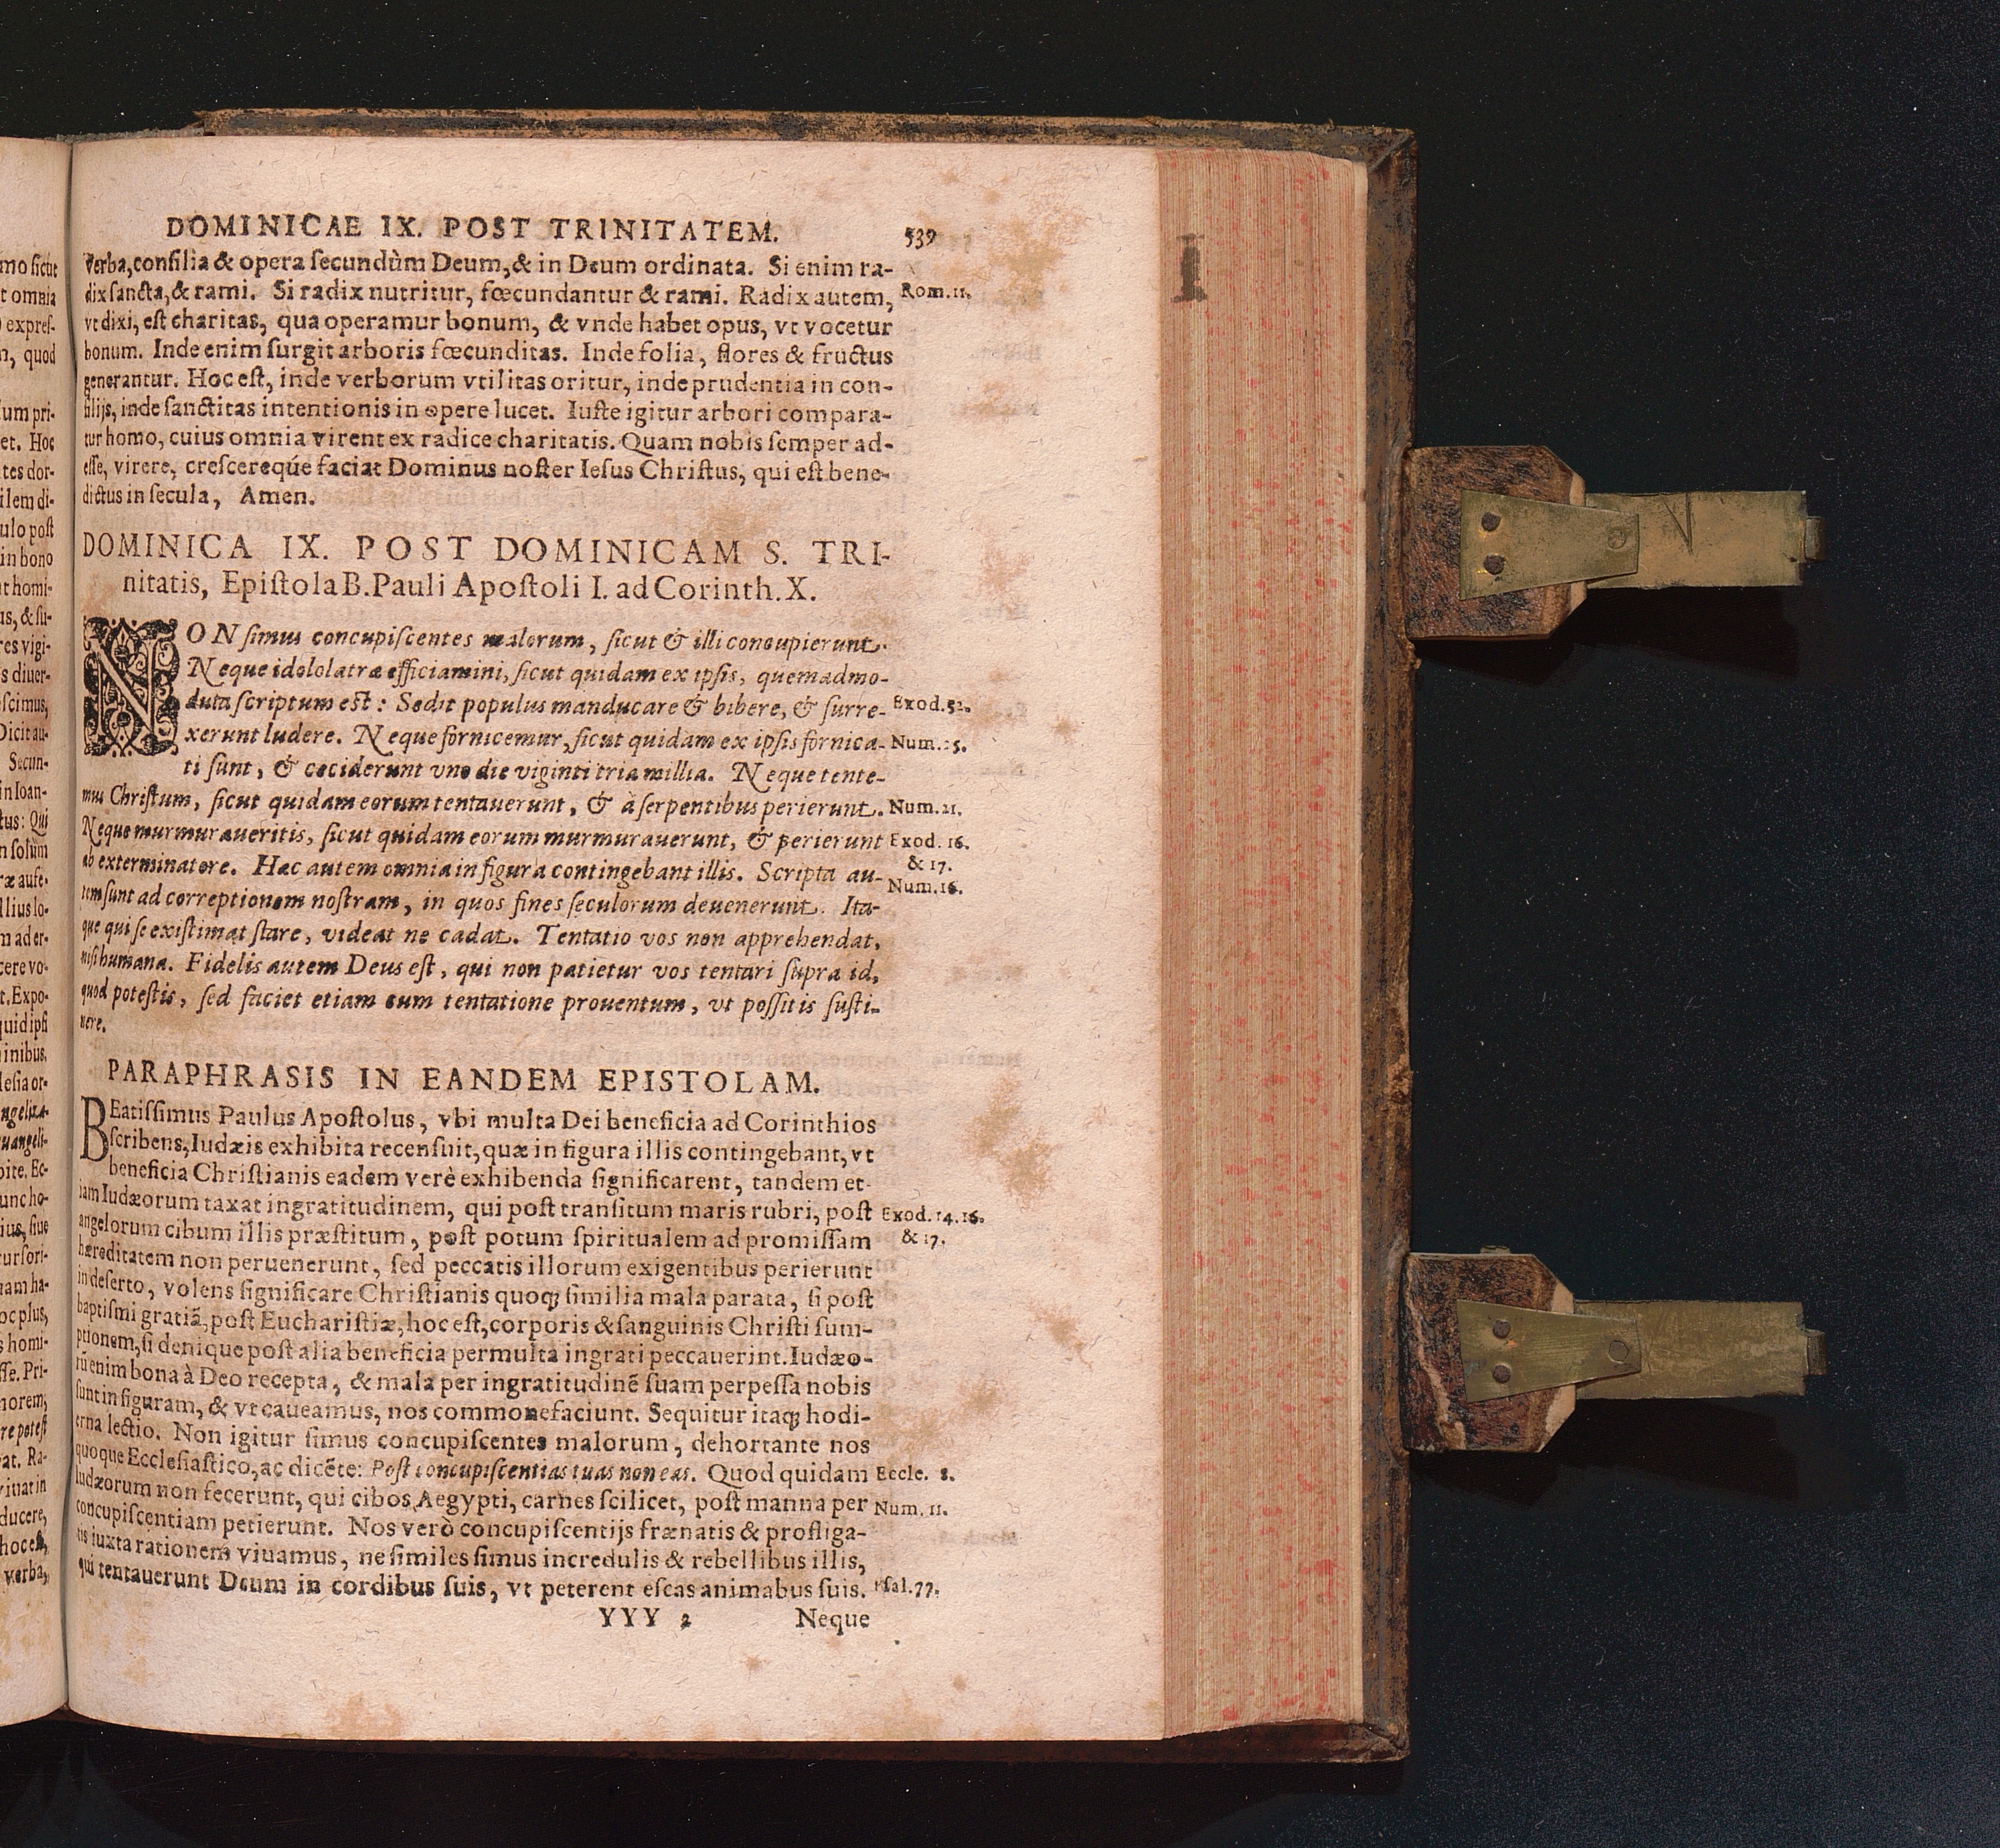 DOMINICAE IX. POST TRINITATEM. 539
verba, consilia & opera secundùm Deum, & in Deum ordinata. Si enim ra-
dix sancta, & rami. Si radix nutritur, fœcundantur & rami. Radix autem, Rom. 11.
vt dixi, est charitas, qua operamur bonum, & vnde habet opus, vt vocetur
bonum. Inde enim surgit arboris fœcunditas. Inde folia, flores & fructus
generantur. Hoc est, inde verborum vtilitas oritur, inde prudentia in con-
silijs, inde sanctitas intentionis in opere lucet. Iuste igitur arbori compara-
tur homo, cuius omnia virent ex radice charitatis. Quam nobis semper ad-
esse, virere, crescereque faciat Dominus noster Iesus Christus, qui est bene-
dictus in secula, Amen.
DOMINICA IX. POST DOMINICAM S. TRI-
nitatis, Epistola B. Pauli Apostoli I. ad Corinth. X.
NON simus concupiscentes malorum, sicut & illi concupierunt.
Neque idololatræ efficiamini, sicut quidam ex ipsis, quemadmo-
dum scriptum est: Sedit populus manducare & bibere, & surre- Exod. 32.
xerunt ludere. Neque fornicemur, sicut quidam ex ipsis fornica- Num. 25.
ti sunt, & ceciderunt vno die viginti tria millia. Neque tente-
mus Christum, sicut quidam eorum tentauerunt, & à serpentibus perierunt. Num. 21.
Neque murmuraueritis, sicut quidam eorum murmurauerunt, & perierunt Exod. 16.
& 17.
ab exterminatore. Hæc autem omnia in figura contingebant illis. Scripta au- Num. 16.
tem sunt ad correptionem nostram, in quos fines seculorum deuenerunt. Ita-
que qui se existimat stare, videat ne cadat. Tentatio vos non apprehendat,
nisi humana. Fidelis autem Deus est, qui non patietur vos tentari supra id,
quod potestis, sed faciet etiam cum tentatione prouentum, vt possitis susti-
nere.
PARAPHRASIS IN EANDEM EPISTOLAM.
BEatissimus Paulus Apostolus, vbi multa Dei beneficia ad Corinthios
scribens, Iudæis exhibita recensuit, quæ in figura illis contingebant, vt
beneficia Christianis eadem verè exhibenda significarent, tandem et-
iam Iudæorum taxat ingratitudinem, qui post transitum maris rubri, post Exod. 14. 16.
angelorum cibum illis præstitum, post potum spiritualem ad promissam & 17.
hæreditatem non peruenerunt, sed peccatis illorum exigentibus perierunt
in deserto, volens significare Christianis quoq; similia mala parata, si post
baptismi gratiã, post Eucharistiæ, hoc est, corporis & sanguinis Christi sum-
ptionem, si denique post alia beneficia permulta ingrati peccauerint. Iudæo-
rũ enim bona à Deo recepta, & mala per ingratitudinẽ suam perpessa nobis
sunt in figuram, & vt caueamus, nos commonefaciunt. Sequitur itaq; hodi-
erna lectio. Non igitur simus concupiscentes malorum, dehortante nos
quoque Ecclesiastico, ac dicẽte: Post concupiscentias tuas non eas. Quod quidam Eccle. 8.
Iudæorum non fecerunt, qui cibos Aegypti, carnes scilicet, post manna per Num. 11.
concupiscentiam petierunt. Nos verò concupiscentijs frænatis & profliga-
tis iuxta rationem viuamus, ne similes simus incredulis & rebellibus illis,
qui tentauerunt Deum in cordibus suis, vt peterent escas animabus suis. Psal. 77.
YYY 2 Neque